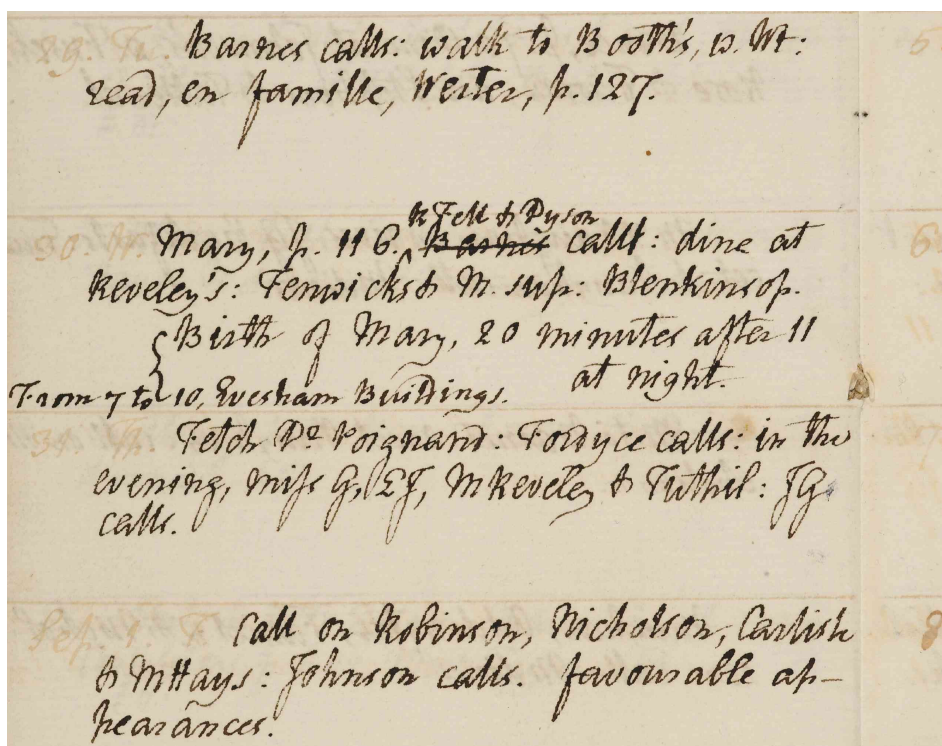 29. Tu. Barnes calls: walk to Booth's, w. Wt:
read, en famille, Werter, p. 127.
R Fell & Dyson
30. W. Mary, p. 116. Barnes call: dine at
Reveley's: Fenwicks & M. sup: Blenkinsop.
Birth of Mary, 20 minutes after 11
at night.
From 7 to 10, Evesham Buildings.
31. Th. Fetch Dr Poignand: Fordyce calls: in the
evening, miss G, LJ, M Reveley & Tuthil: JG
calls.
Sep. 1. F. Call on Robinson, Nicholson, Carlisle
& M Hays: Johnson calls. favourable ap-
pearances.
5
6
11
7
8